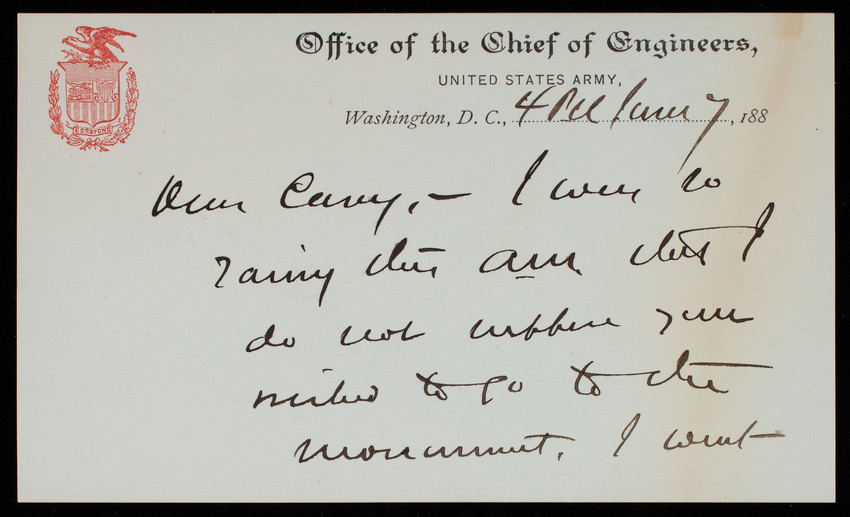 Office of the Chief of Engineers,
UNITED STATES ARMY,
Washington, D. C., 4 PM June 7, 188
ESSAYONS
Dear Casey, – I was so
rainy this am that I
do not suppose you
wished to go to the
monument. I went